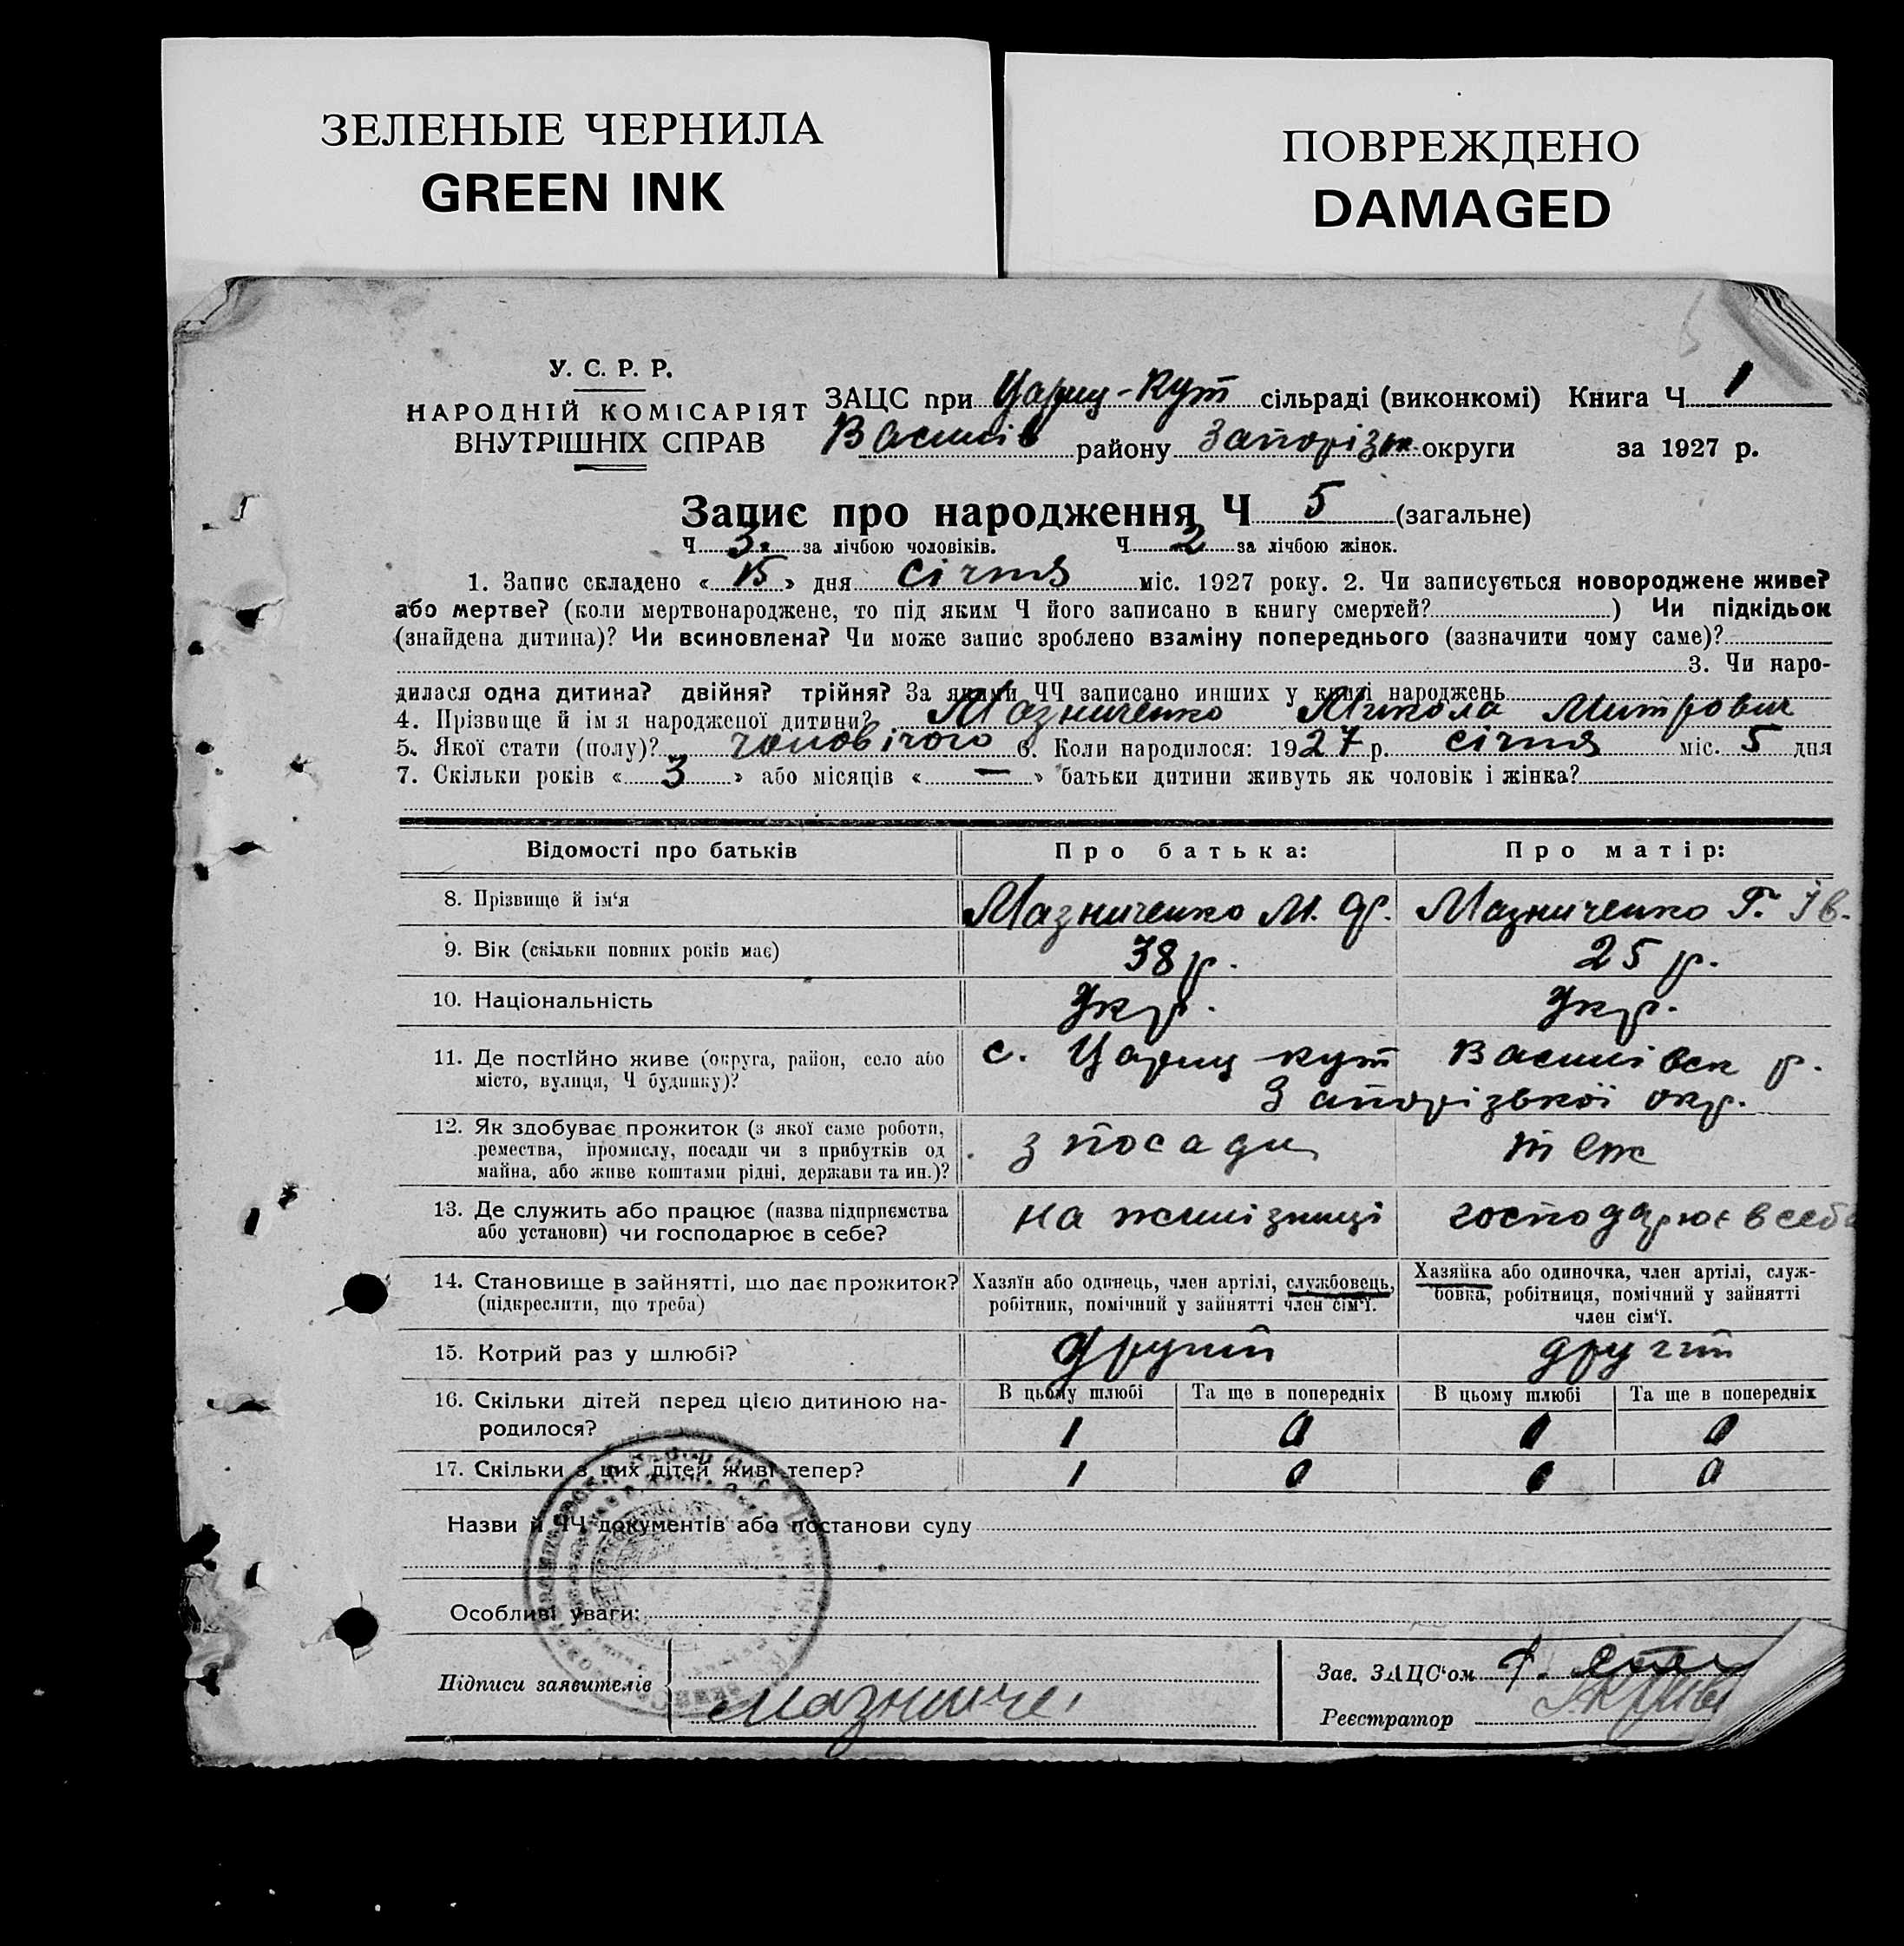 ЗЕЛЕНЫЕ ЧЕРНИЛА
GREEN INK
ПОВРЕЖДЕНО
DAMAGED
У. С. Р. Р.
НАРОДНІЙ КОМІСАРІЯТ
ВНУТРІШНІХ СПРАВ
ЗАЦС при Цариц-Кут сільраді (виконкомі) Книга Ч 1
Василів району Запорізьк округи за 1927 р.
Запис про народження Ч 5 (загальне)
Ч 3 за лічбою чоловіків. Ч 2 за лічбою жінок.
1. Запис складено «15» дня січня міс. 1927 року. 2. Чи записується новороджене живе?
або мертве? (коли мертвонароджене, то під яким Ч його записано в книгу смертей? ) Чи підкідьок
(знайдена дитина)? Чи всиновлена? Чи може запис зроблено взаміну попереднього (зазначити чому саме)?
3. Чи наро-
дилася одна дитина? двійня? трійня? За якими ЧЧ записано инших у книзі народжень
4. Прізвище й ім'я народженої дитини? Мазниченко Микола Митрович
5. Якої стати (полу)? чоловічого 6. Коли народилося: 1927 р. січня міс. 5 дня
7. Скільки років «3» або місяців «—» батьки дитини живуть як чоловік і жінка?
Відомості про батьків Про батька: Про матір:
8. Прізвище й ім'я Мазниченко М. Др. Мазниченко Г. Ів.
9. Вік (скільки повних років має) 38 р. 25 р.
10. Національність Укр. Укр.
11. Де постійно живе (округа, район, село або
місто, вулиця, Ч будинку)?
с. Цариц кут Василівськ р.
Запорізької окр.
12. Як здобуває прожиток (з якої саме роботи,
ремества, промислу, посади чи з прибутків од
майна, або живе коштами рідні, держави та ин.)?
з посади теж
13. Де служить або працює (назва підприємства
або установи) чи господарює в себе?
на желізниці господарює в себе
14. Становище в зайнятті, що дає прожиток?
(підкреслити, що треба)
Хазяїн або одинець, член артілі, службовець,
робітник, помічний у зайнятті член сім'ї.
Хазяйка або одиночка, член артілі, служ-
бовка, робітниця, помічний у зайнятті
член сім'ї.
15. Котрий раз у шлюбі? другий другий
16. Скільки дітей перед цією дитиною на-
родилося?
В цьому шлюбі Та ще в попередніх В цьому шлюбі Та ще в попередніх
1 0 0 0
17. Скільки з цих дітей живі тепер? 1 0 0 0
Назви й ЧЧ документів або постанови суду
Особливі уваги:
Підписи заявителів Мазниче
Зав. ЗАЦС'ом
Реєстратор